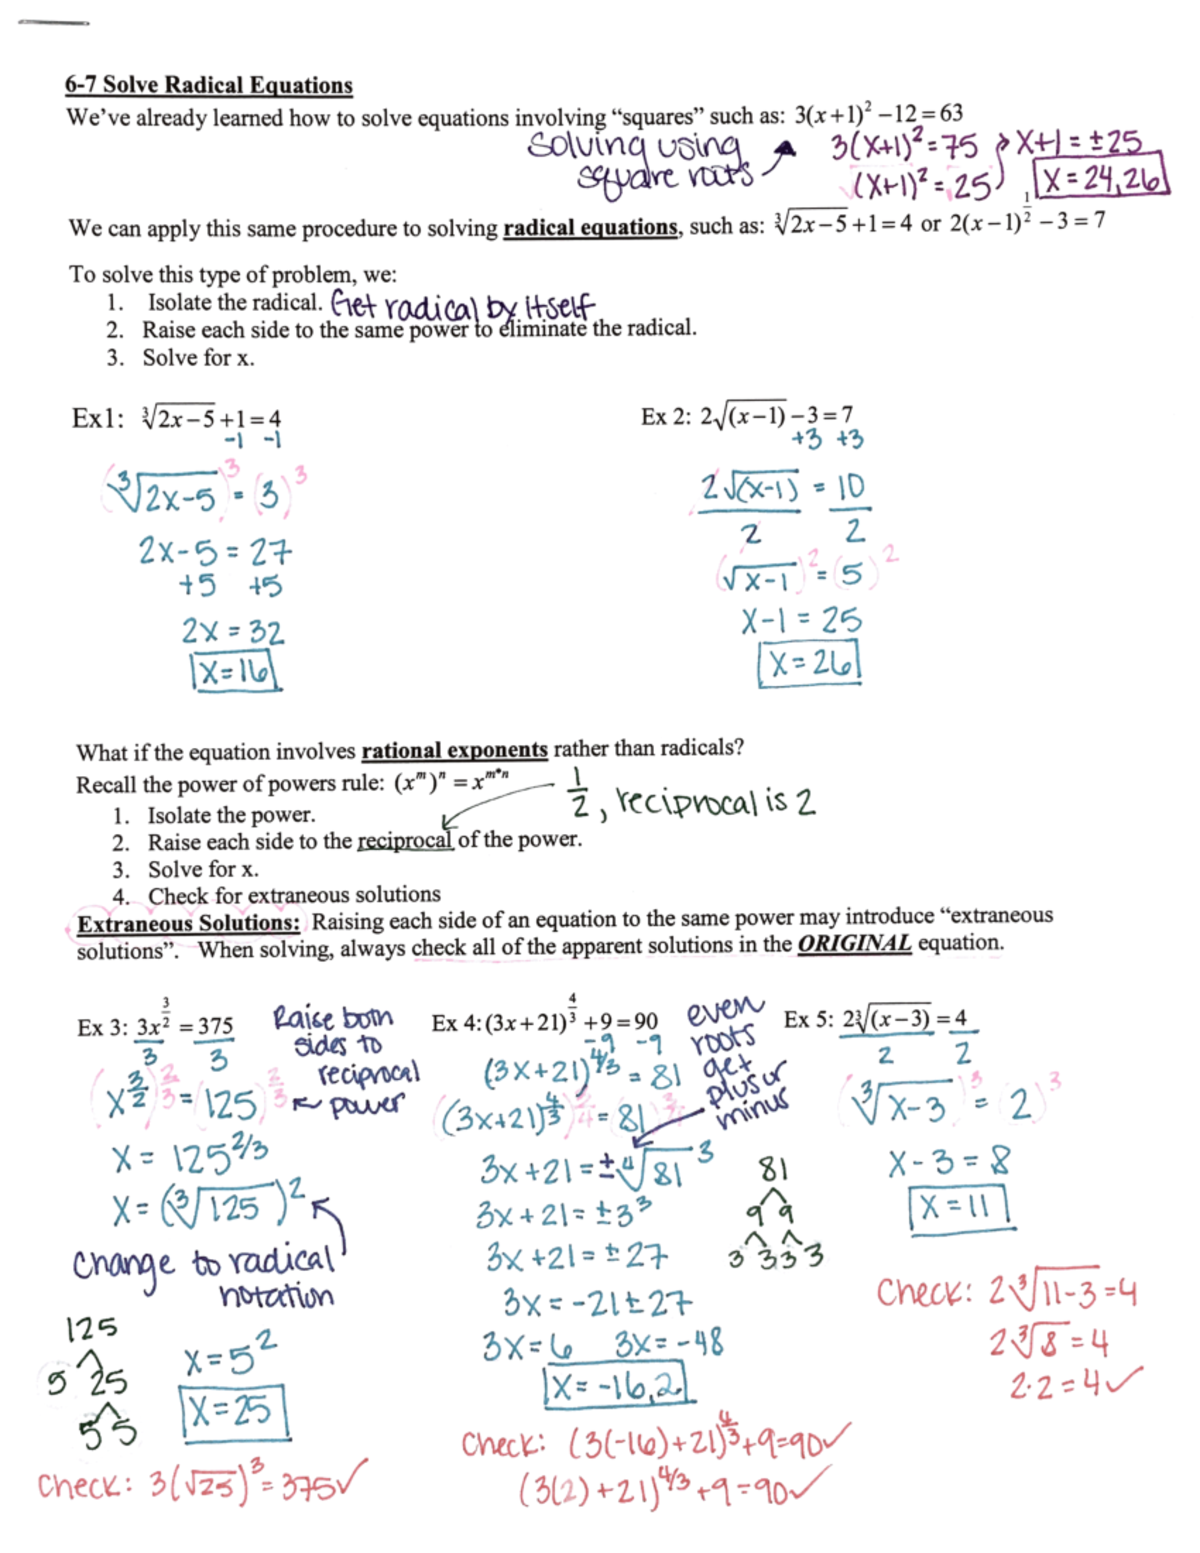 6-7 Solve Radical Equations
We've already learned how to solve equations involving "squares" such as: 3(x+1)² −12=63
Solving using square roots
3(x+1)² = 75
(x+1)² = 25
x+1 = ±25
x = 24,26
We can apply this same procedure to solving radical equations, such as: ∛(2x−5)+1=4 or 2(x−1)^(1/2) −3=7
To solve this type of problem, we:
1. Isolate the radical. Get radical by itself
2. Raise each side to the same power to eliminate the radical.
3. Solve for x.
Ex1: ∛(2x−5)+1=4
-1 -1
(∛(2x-5))³ = (3)³
2x-5 = 27
+5 +5
2x = 32
x=16
Ex 2: 2√(x−1) −3=7
+3 +3
2√(x-1) = 10
2 2
(√(x-1))² = (5)²
x-1 = 25
x=26
What if the equation involves rational exponents rather than radicals?
Recall the power of powers rule: (x^m)^n = x^(m*n)
1/2, reciprocal is 2
1. Isolate the power.
2. Raise each side to the reciprocal of the power.
3. Solve for x.
4. Check for extraneous solutions
Extraneous Solutions: Raising each side of an equation to the same power may introduce "extraneous
solutions". When solving, always check all of the apparent solutions in the ORIGINAL equation.
Ex 3: 3x^(3/2) = 375
3 3
(x^(3/2))^(2/3) = (125)^(2/3)
Raise both
sides to
reciprocal
power
x = 125^(2/3)
x = (∛125)²
Change to radical
notation
125
5 25
5 5
x=5²
x=25
Check: 3(√25)³ = 375✓
Ex 4: (3x+21)^(4/3) +9=90
-9 -9
(3x+21)^(4/3) = 81
((3x+21)^(4/3))^(3/4) = 81^(3/4)
even
roots
get
plus or
minus
3x+21 = ±∜81³
3x+21 = ±3³
3x+21 = ±27
3x = -21±27
3x=6 3x=-48
x=-16,2
81
9 9
3 3 3 3
Check: (3(-16)+21)^(4/3)+9=90✓
(3(2)+21)^(4/3)+9=90✓
Ex 5: 2∛(x−3) = 4
2 2
(∛(x-3))³ = (2)³
x-3 = 8
x=11
Check: 2∛(11-3)=4
2∛8=4
2·2=4✓